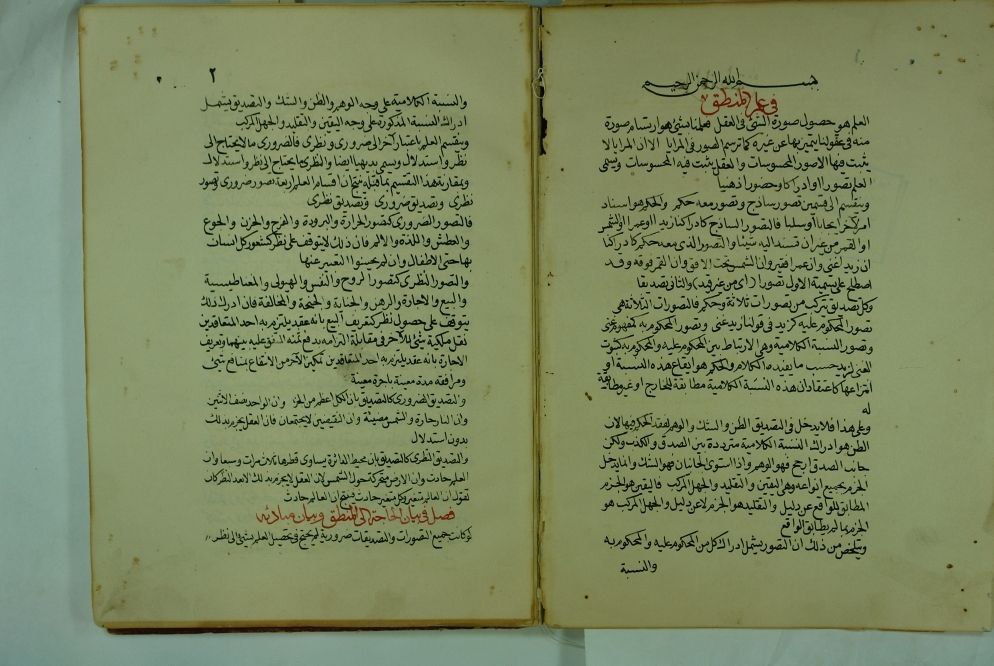 بسم الله الرحمن الرحيم
في علم المنطق
العلم هو حصول صورة الشئ في العقل فعلمنا بشئ هو ارتسام صورة
منه في عقولنا يتميز بها عن غيره كما ترتسم الصور في المرايا الا ان المرايا لا
يثبت فيها الا صور المحسوسات والعقل يثبت فيه المحسوسات ويسمى
العلم تصورا او ادراكا وحضورا ذهنيا
وينقسم الى قسمين تصور ساذج وتصور معه حكم والحكم هو اسناد
امر لآخر ايجابا او سلبا فالتصور الساذج كادراكنا زيدا او عمرا او الشمس
او القمر من غير ان تسند اليه شيئا والتصور الذي معه حكم كادراكنا
ان زيد اغنى وان عمرا فقير وان الشمس تحت الافق وان القمر فوقه وقد
اصطلح على تسمية الاول تصورا (اي من غير قيد) والثاني تصديقا
وكل تصديق يتركب من تصورات ثلاثة وحكم فالتصورات الثلاثة هي
تصور المحكوم عليه كزيد في قولنا زيد غنى وتصور المحكوم به كمفهوم غنى
وتصور النسبة الكلامية وهي الارتباط بين المحكوم عليه والمحكوم به كثبوت
الغنى لزيد حسب ما يفيده الكلام والحكم هو ايقاع هذه النسبة او
انتزاعها كاعتقاد ان هذه النسبة الكلامية مطابقة للخارج او غير مطابقة
له
وعلى هذا فلا يدخل في التصديق الظن والشك والوهم لفقد الحكم فيها لان
الظن هو ادراك النسبة الكلامية مترددة بين الصدق والكذب ولكن
جانب الصدق ارجح فهو الوهم واذا استوى الجانبان فهو الشك وانما يدخل
الجزم بجميع انواعه وهي اليقين والتقليد والجهل المركب فاليقين هو الجزم
المطابق للواقع عن دليل والتقليد هو الجزم لا عن دليل والجهل المركب هو
الجزم بما لم يطابق الواقع
ويتلخص من ذلك ان التصور يشمل ادراك كل من المحكوم عليه والمحكوم به
والنسبة
٢
والنسبة الكلامية على وجه الوهم والظن والشك والتصديق يشمل
ادراك النسبة المذكورة على وجه اليقين والتقليد والجهل المركب
وينقسم العلم باعتبار آخر الى ضروري ونظري فالضروري ما لا يحتاج الى
نظر واستدلال ويسمى بديهيا ايضا والنظري ما يحتاج الى نظر واستدلال
وبمقارنة هذا التقسيم بما قبله ينتج ان اقسام العلم اربعة تصور ضروري وتصور
نظري وتصديق ضروري وتصديق نظري
فالتصور الضروري كتصور الحرارة والبرودة والفرح والحزن والجوع
والعطش واللذة والالم فان ذلك لا يتوقف على نظر كشعور كل انسان
بها حتى الاطفال وان لم يحسنوا التعبير عنها
والتصور النظري كتصور الروح والنفس والهيولى والمغناطيسية
والبيع والاجارة والرهن والجناية والجنحة والمخالفة فان ادراك ذلك
يتوقف على حصول نظر كتعريف البيع بانه عقد يلتزم به احد المتعاقدين
نقل ملكية شئ للآخر في مقابلة التزامه بدفع ثمنه المتفق عليه بينهما وتعريف
الاجارة بانه عقد يلتزم به احد المتعاقدين تمكين الآخر من الانتفاع بمنافع شئ
ومرافقه مدة معينة باجرة معينة
والتصديق الضروري كالتصديق بان الكل اعظم من الجزء وان الواحد نصف الاثنين
وان النار حارة والشمس مضيئة وان النقيضين لا يجتمعان فان العقل يجزم بذلك
بدون استدلال
والتصديق النظري كالتصديق بان محيط الدائرة يساوي قطرها ثلاث مرات وسبعا وان
العالم حادث وان الارض متحركة حول الشمس لان العقل لا يجزم بذلك الا بعد النظر كأن
تقول ان العالم متغير وكل متغير حادث فينتج ان العالم حادث
فصل في بيان الحاجة الى المنطق وبيان مبادئه
لو كانت جميع التصورات والتصديقات ضرورية لم يحتج في تحصيل العلم بشئ الى نظر